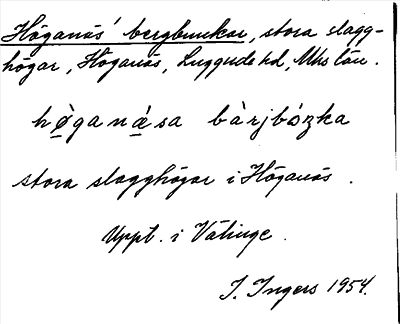 Höganäs' bergbunkar, stora slagg-
högar, Höganäs, Luggude hd, Mhs län.
hø̀ganæ̀sa bàrjbóŋka
stora slagghögar i Höganäs.
Uppt. i Välinge.
I. Ingers 1954.